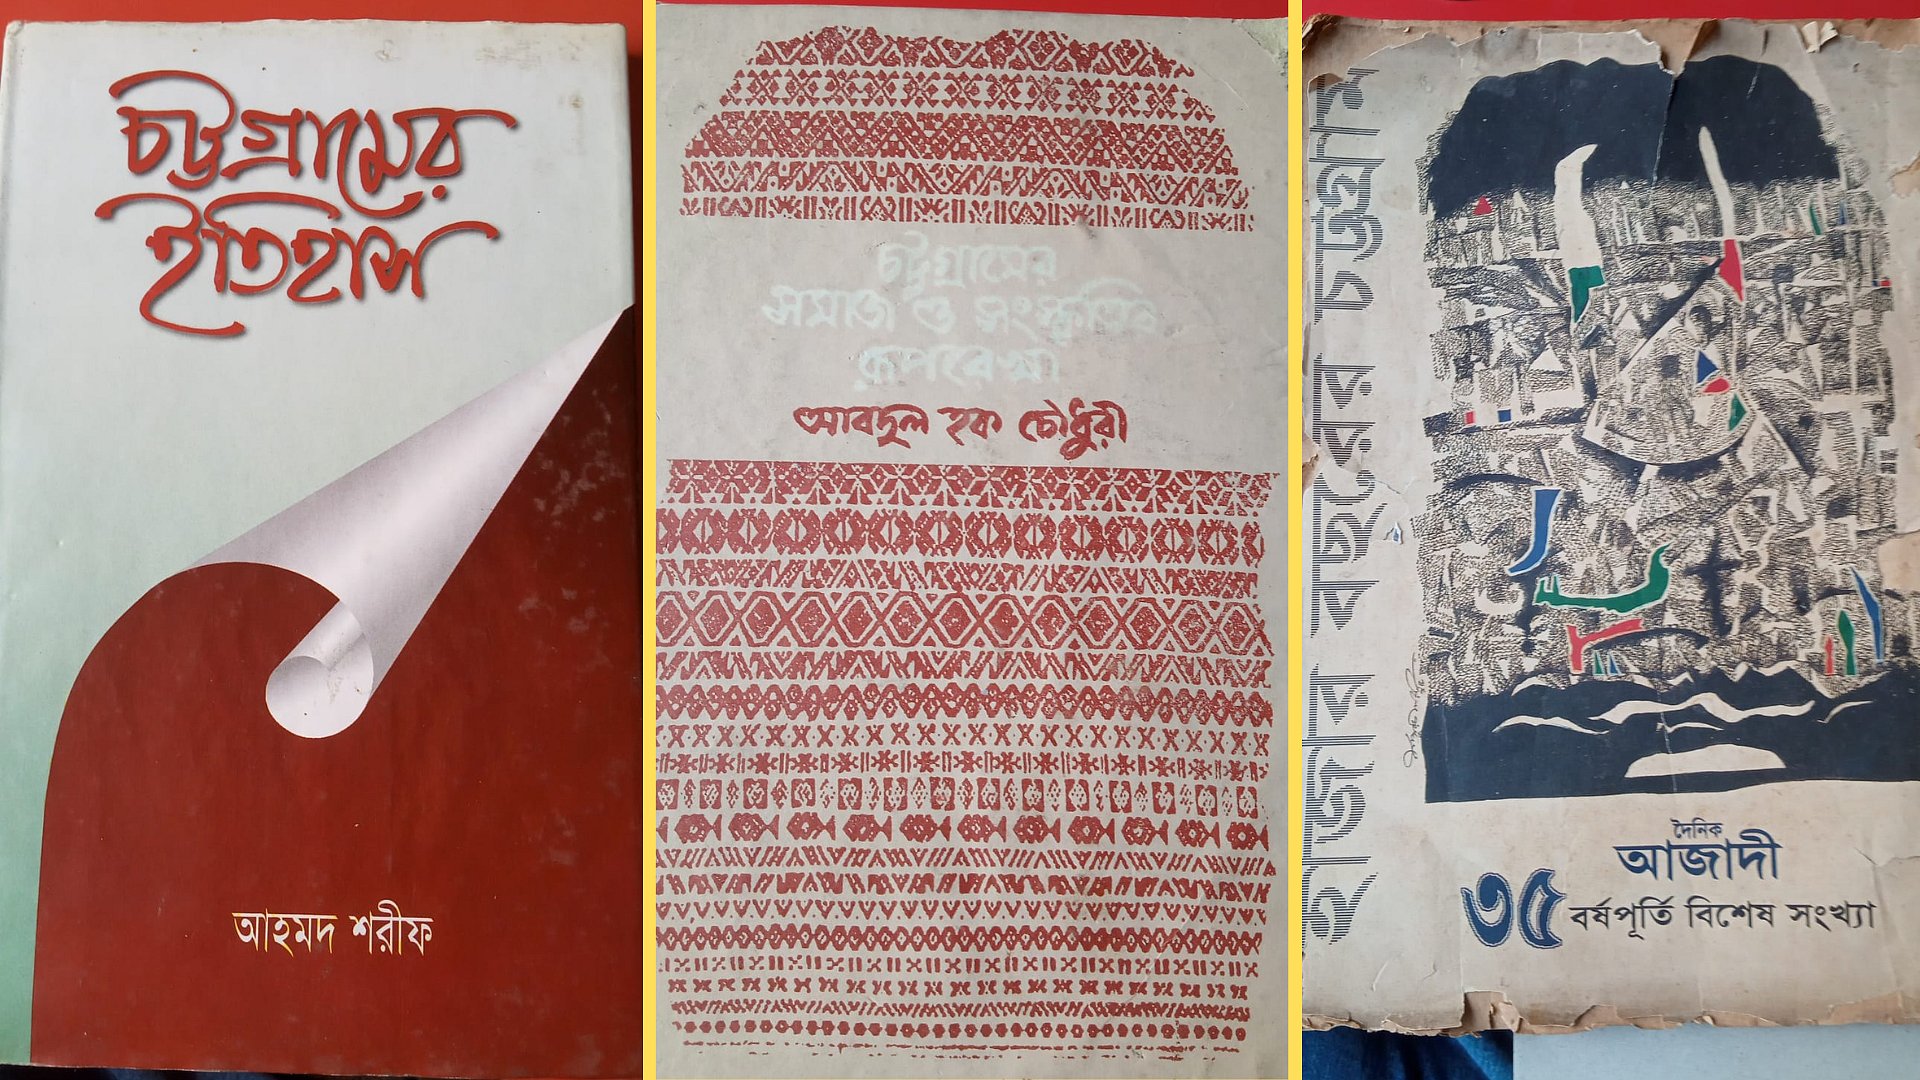 চট্টগ্রামের
ইতিহাস
আহমদ শরীফ
চট্টগ্রামের
সমাজ ও সংস্কৃতির
রূপরেখা
আবদুল হক চৌধুরী
হাজার বছরের চট্টগ্রাম
দৈনিক
আজাদী
৩৫ বর্ষপূর্তি বিশেষ সংখ্যা